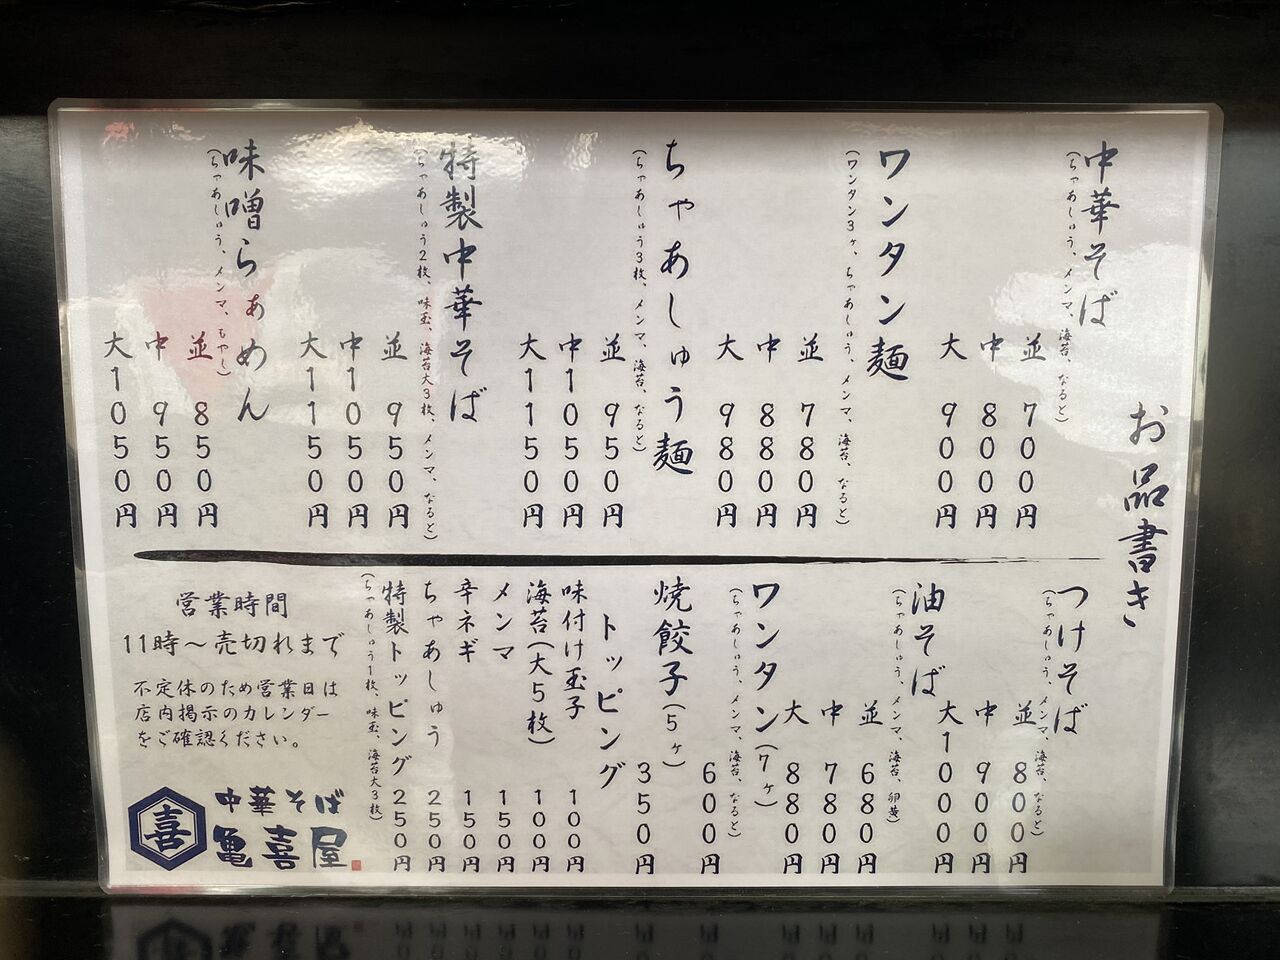 お品書き
中華そば
(ちゃあしゅう、メンマ、海苔、なると)
並 700円
中 800円
大 900円
ワンタン麺
(ワンタン3ヶ、ちゃあしゅう、メンマ、海苔、なると)
並 780円
中 880円
大 980円
ちゃあしゅう麺
(ちゃあしゅう3枚、メンマ、海苔、なると)
並 950円
中 1050円
大 1150円
特製中華そば
(ちゃあしゅう2枚、味玉、海苔大3枚、メンマ、なると)
並 950円
中 1050円
大 1150円
味噌らぁめん
(ちゃあしゅう、メンマ、もやし)
並 850円
中 950円
大 1050円
つけそば
(ちゃあしゅう、メンマ、海苔、なると)
並 800円
中 900円
大 1000円
油そば
(ちゃあしゅう、メンマ、海苔、卵黄)
並 680円
中 780円
大 880円
ワンタン(7ヶ)
(ちゃあしゅう、メンマ、海苔、なると)
600円
焼餃子(5ヶ)
350円
トッピング
味付け玉子 100円
海苔(大5枚) 100円
メンマ 150円
辛ネギ 150円
ちゃあしゅう 250円
特製トッピング 250円
(ちゃあしゅう1枚、味玉、海苔大3枚)
営業時間
11時〜売切れまで
不定休のため営業日は
店内掲示のカレンダー
をご確認ください。
喜
中華そば
亀喜屋